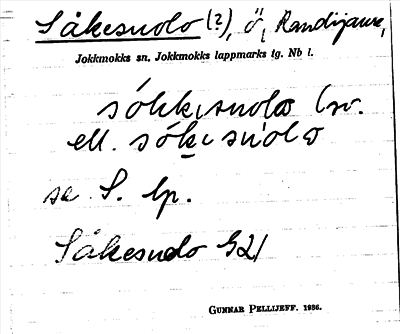 Såkesuolo (?), ö, Randijaure,
Jokkmokks sn. Jokkmokks lappmarks tg. Nb l.
sókkₑsuolɷ (sv.
ell. sókₑsuolɷ
se S. lp.
Såkesuolo G21
GUNNAR PELLIJEFF. 1986.